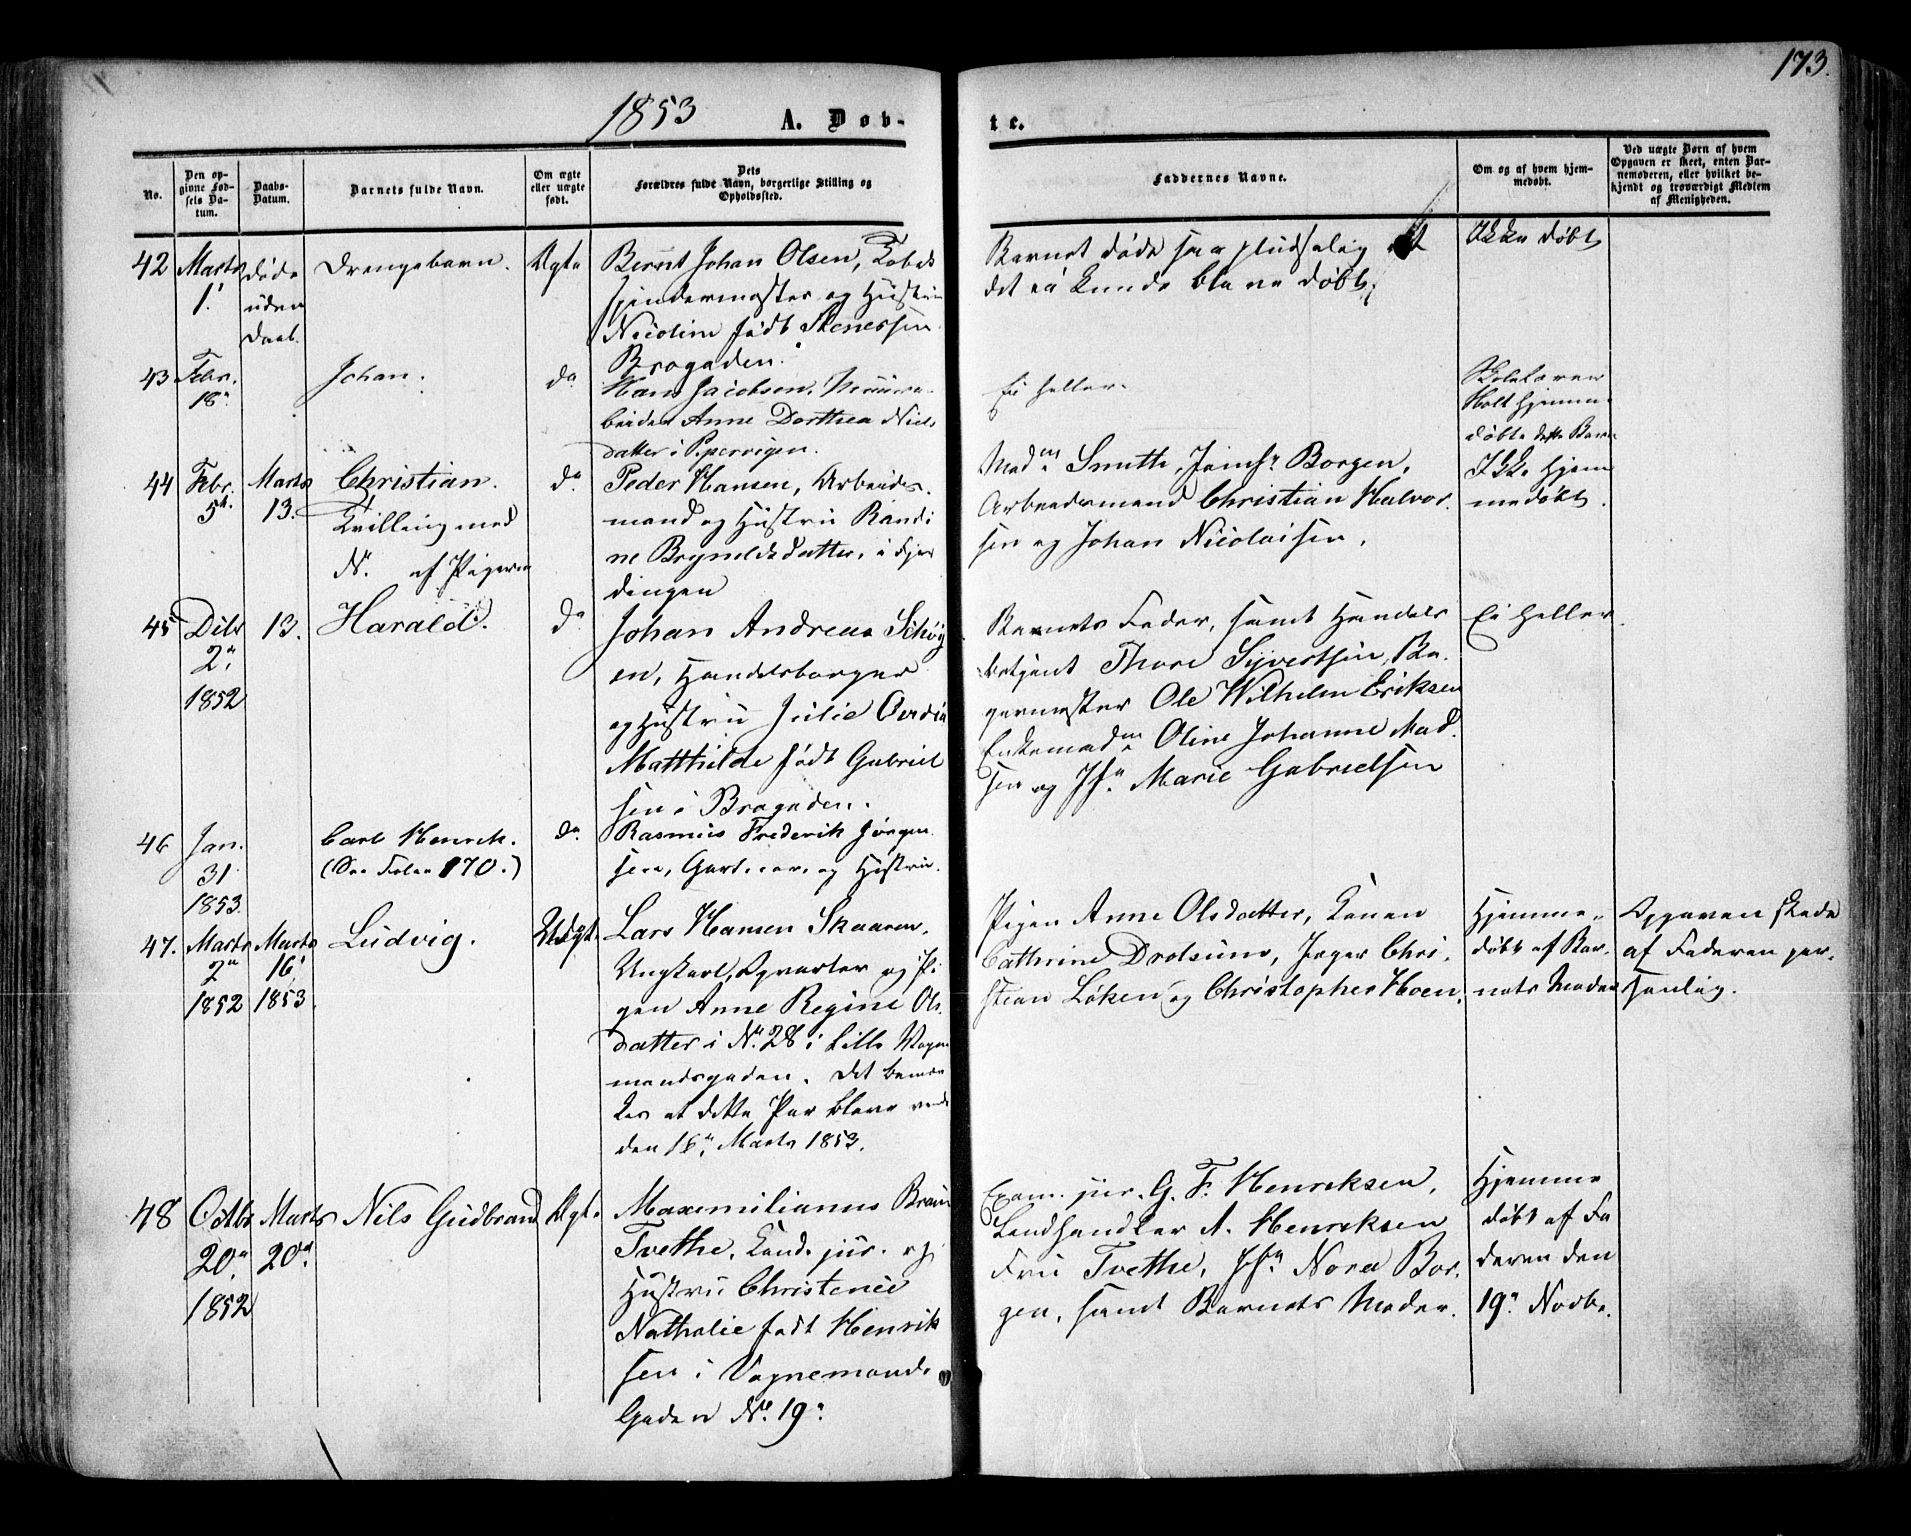 173.
1853 A. Døb-
te.
No.
Den op-
givne Fød-
sels Da-
tum.
Daabs-
Datum.
Barnets fulde Navn.
Om ægte
eller uægte
født.
Dets
Forældres fulde Navn, borgerlige Stilling og
Opholdssted.
Faddernes Navne.
Om og af hvem hjem-
medøbt.
Ved uægte Børn af hvem
Opgaven er skeet, enten Bar-
nemoderen, eller hvilket be-
kjendt og troværdigt Medlem
af Menigheden.
42
Marts
1.
døde
uden
Daab.
Drengebarn.
Ægte
Bernt Johan Olsen,
og Hustru
Nicoline født
Bragaden.
Barnet døde saa pludselig at
det ei kunde blive døbt,
Ikke døbt
43
Febr.
18.
Johan.
do
Hans Jacobsen, Murar-
beider Anne Dorthea Niels
datter i Pipervigen.
Ei heller.
Skolelærer
Holt hjemme-
døbte dette Barn
44
Febr.
5t.
Marts
13.
Christian.
Tvilling med
N. af Pigerne
do
Peder Hansen, Arbeids-
mand og Hustru Randi
ne Bryneldsdatter, i Fjer
dingen
Madm Smith, Jomfr. Borgen,
Arbeidsmand Christian Halvor-
sen og Johan Nicolaisen,
Ikke hjem
medøbt.
45
Dcbr
2n
1852
13.
Harald.
do
Johan Andreas Schøy
en, Handelsborger
og Hustru Julie Ovidia
Matthilde født Gabriel
sen i Bragaden.
Barnets Fader, samt Handels
betjent Thore Syvertsen, Ba-
germester Ole Wilhelm Eriksen
Enkemadm Oline Johanne Mad-
sen og Jfr. Marie Gabrielsen
Ei heller.
46
Jan.
31
1853.
Carl Henrik.
(See Folio 170.)
do
Rasmus Frederik Jørgen
sen, Gartner, og Hustru.
47.
Marts
2n
1852
Marts
16
1853.
Ludvig.
Uægt.
Lars Hansen Skaaren,
Ungkarl, Opvarter og Pi
gen Anne Regine Ols
datter i No. 28 i Lille Vogn
mandsgaden. Det bemær
kes at dette Par bleve viede
den 18n Marts 1853.
Pigen Anne Olsdatter, Konen
Cathrine Drolsum, Jæger Chri-
stian Løken og Christopher Hoen,
Hjemme-
døbt af Bar-
nets Moder
Opgaven skede
af Faderen per-
sonlig.
48
Octbr
20n
1852
Marts
20n
Nils Gudbrand
Ægt.
Maximilianus Braun
Tvethe, Cand. jur. og
Hustru Christence
Nathalie født Henrik
sen i Vognemands
Gaden No. 19n
Exam. jur. G. F. Henriksen,
Landhandler A. Henriksen
Fru Tvethe, Jfr. Nora Bor-
gen, samt Barnets Moder.
Hjemme
døbt af Fa
deren den
19n Novbr.